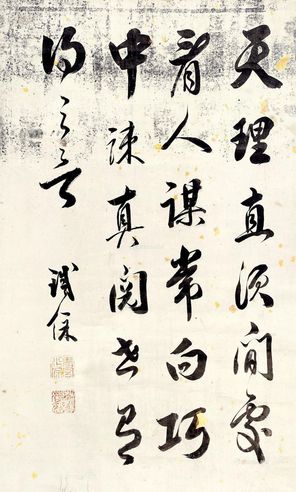 天理直須閒處
看人謀常向巧
中疎真閱世有
得之言
鐵保